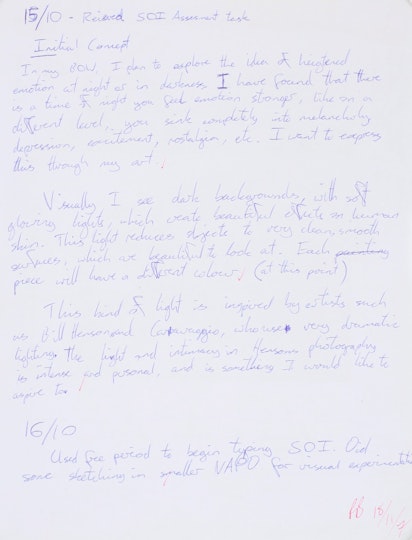 15/10 - Recieved SOI Assesment task
Initial Concept
In my BOW, I plan to explore the idea of heightened
emotion at night or in darkness. I have found that there
is a time of night you feel emotion stronger, like on a
different level, you sink completely into melancholy
depression, excitement, nostalgia, etc. I want to express
this through my art.
Visually I see dark backgrounds, with soft
glowing lights, which create beautiful effects on human
skin. This light reduces objects to very clean, smooth
surfaces, which are beautiful to look at. Each painting
piece will have a different colour, (at this point)
This kind of light is inspired by artists such
as Bill Henson and Caravaggio, who use very dramatic
lighting. The light and intimacy in Hensons photography
is intense and personal, and is something I would like to
aspire to.
16/10
Used free period to begin typing SOI. Did
some sketching in smaller VAPD for visual experimentation